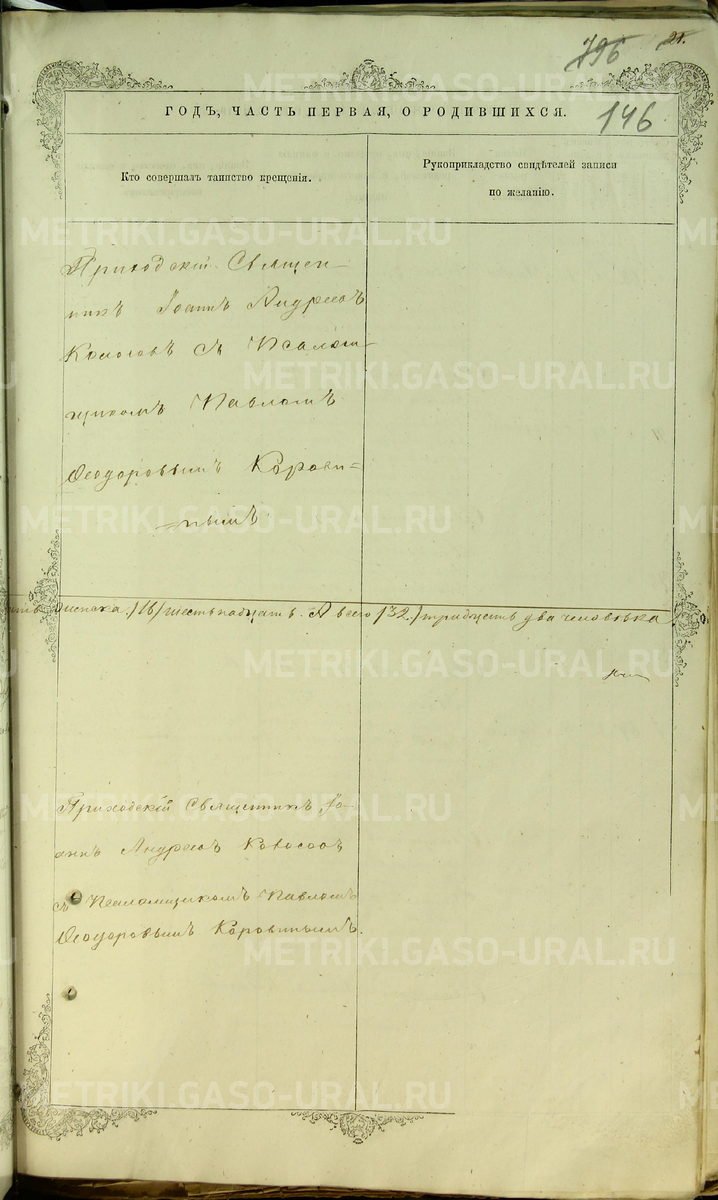 196 21.
146
ГОДЪ, ЧАСТЬ ПЕРВАЯ, О РОДИВШИХСЯ.
Кто совершалъ таинство крещенія.
Рукоприкладство свидѣтелей записи
по желанію.
Приходскій Священ-
никъ Іоаннъ Андреевъ
съ Псалом-
щикомъ Павломъ
Ѳеодоровымъ Корови-
нымъ
/16/ шестнадцать. А всего /32/ тридцать два человѣка
Приходскій Священникъ Іо-
аннъ Андреевъ
съ Псаломщикомъ Павломъ
Ѳеодоровымъ Коровинымъ.
METRIKI.GASO-URAL.RU